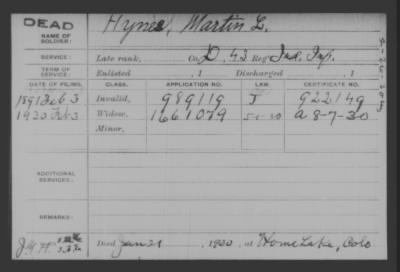 DEAD
NAME OF SOLDIER:
Hynes, Martin L.
SERVICE:
Late rank, Co. D, 43 Reg't Ind. Inf.
TERM OF SERVICE:
Enlisted , 1 Discharged , 1
DATE OF FILING. CLASS. APPLICATION NO. LAW. CERTIFICATE NO.
1891 Feb 3 Invalid, 989119 922149
1930 Feb 3 Widow, 1661079 A 8-7-30
Minor,
ADDITIONAL SERVICES:
REMARKS:
Died Jan 21, 1930, at Home Lake, Colo